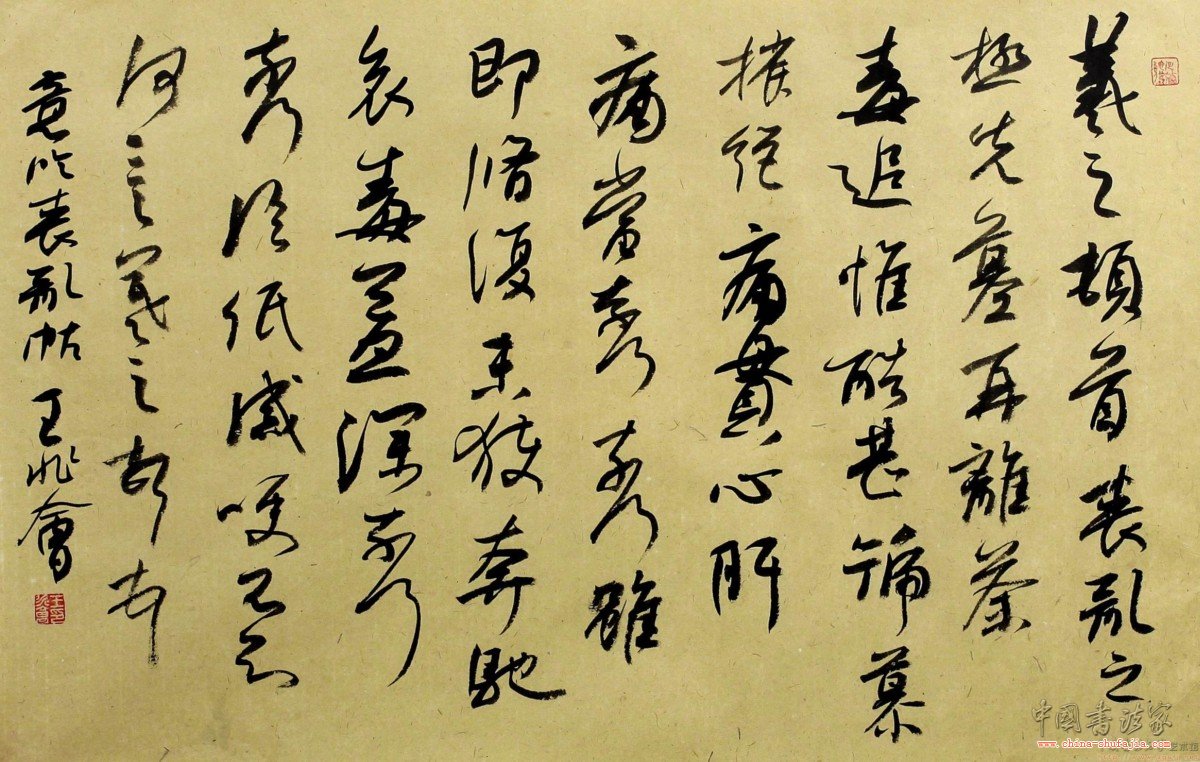 羲之頓首喪亂之
極先墓再離荼
毒追惟酷甚號慕
摧絕痛貫心肝
痛當奈何奈何雖
即脩復未獲奔馳
哀毒益深奈何
奈何臨紙感哽不知
何言羲之頓首
意臨喪亂帖 王兆會
中国书法家
www.china-shufajia.com